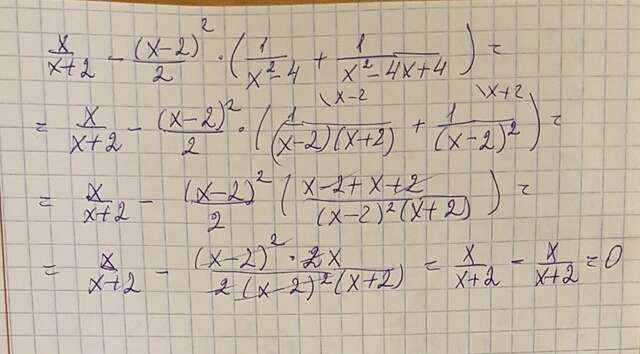 x/(x+2) − (x−2)²/2 · (1/(x²−4) + 1/(x²−4x+4)) =
= x/(x+2) − (x−2)²/2 · (1\x−2/((x−2)(x+2)) + 1\x+2/(x−2)²) =
= x/(x+2) − (x−2)²/2 ((x−2+x+2)/((x−2)²(x+2))) =
= x/(x+2) − (x−2)²·2x/(2(x−2)²(x+2)) = x/(x+2) − x/(x+2) = 0